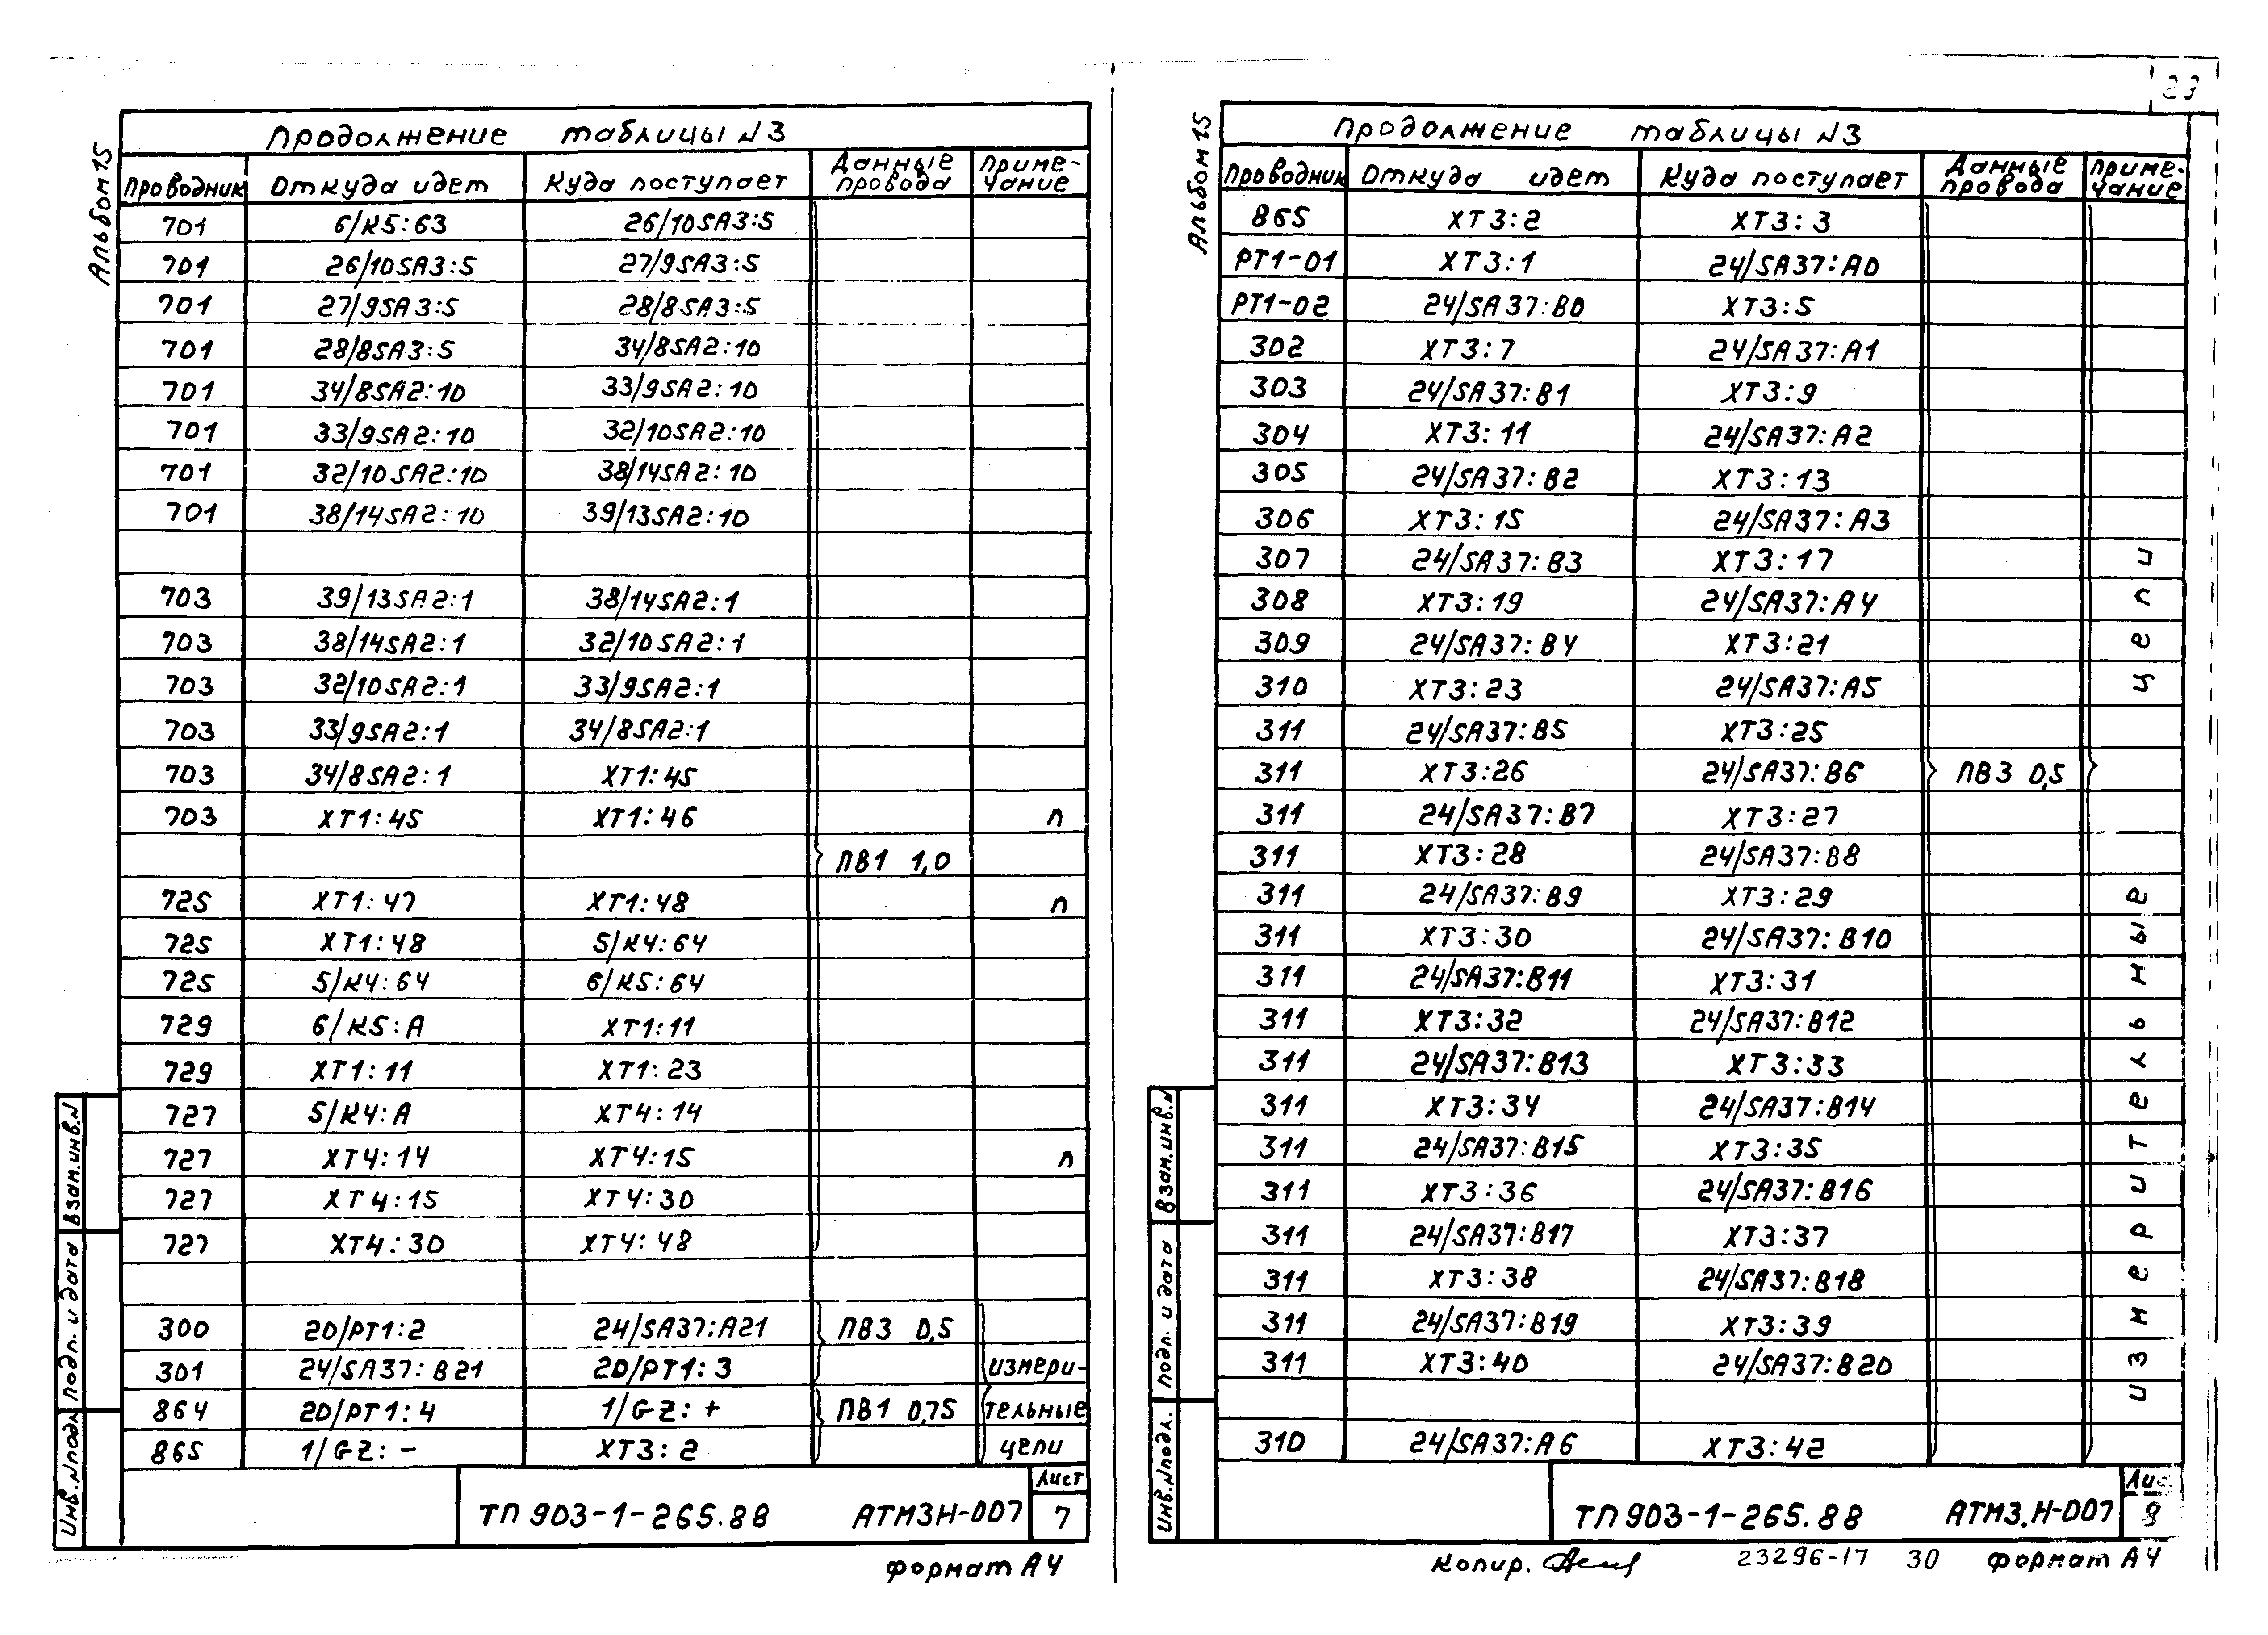 23
Альбом 15
Продолжение таблицы N3
Проводник Откуда идет Куда поступает Данные провода Приме-чание
701 6/К5:63 26/10SA3:5
701 26/10SA3:5 27/9SA3:5
701 27/9SA3:5 28/8SA3:5
701 28/8SA3:5 34/8SA2:10
701 34/8SA2:10 33/9SA2:10
701 33/9SA2:10 32/10SA2:10
701 32/10SA2:10 38/14SA2:10
701 38/14SA2:10 39/13SA2:10
703 39/13SA2:1 38/14SA2:1
703 38/14SA2:1 32/10SA2:1
703 32/10SA2:1 33/9SA2:1
703 33/9SA2:1 34/8SA2:1
703 34/8SA2:1 XT1:45
703 XT1:45 XT1:46 п
ПВ1 1,0
725 XT1:47 XT1:48 п
725 XT1:48 5/К4:64
725 5/К4:64 6/К5:64
729 6/К5:А XT1:11
729 XT1:11 XT1:23
727 5/К4:А XT4:14
727 XT4:14 XT4:15 п
727 XT4:15 XT4:30
727 XT4:30 XT4:48
300 20/РТ1:2 24/SA37:A21 ПВ3 0,5
301 24/SA37:B21 20/РТ1:3 измери-
864 20/РТ1:4 1/GZ:+ ПВ1 0,75 тельные
865 1/GZ:- XT3:2 цепи
Взам.инв.N
Подп. и дата
Инв.Nподл.
ТП 903-1-265.88 АТМ3Н-007
Лист
7
Формат А4
Альбом 15
Продолжение таблицы N3
Проводник Откуда идет Куда поступает Данные провода Приме-чание
865 XT3:2 XT3:3
РТ1-01 XT3:1 24/SA37:A0
РТ1-02 24/SA37:B0 XT3:5
302 XT3:7 24/SA37:A1
303 24/SA37:B1 XT3:9
304 XT3:11 24/SA37:A2
305 24/SA37:B2 XT3:13
306 XT3:15 24/SA37:A3
307 24/SA37:B3 XT3:17
308 XT3:19 24/SA37:A4
309 24/SA37:B4 XT3:21
310 XT3:23 24/SA37:A5
311 24/SA37:B5 XT3:25
311 XT3:26 24/SA37:B6 ПВ3 0,5
311 24/SA37:B7 XT3:27
311 XT3:28 24/SA37:B8
311 24/SA37:B9 XT3:29
311 XT3:30 24/SA37:B10
311 24/SA37:B11 XT3:31
311 XT3:32 24/SA37:B12
311 24/SA37:B13 XT3:33
311 XT3:34 24/SA37:B14
311 24/SA37:B15 XT3:35
311 XT3:36 24/SA37:B16
311 24/SA37:B17 XT3:37
311 XT3:38 24/SA37:B18
311 24/SA37:B19 XT3:39
311 XT3:40 24/SA37:B20
310 24/SA37:A6 XT3:42
измерительные цепи
Взам.инв.N
Подп. и дата
Инв.Nподл.
ТП 903-1-265.88 АТМ3.Н-007
Лис
8
Копир. 23296-17 30 Формат А4